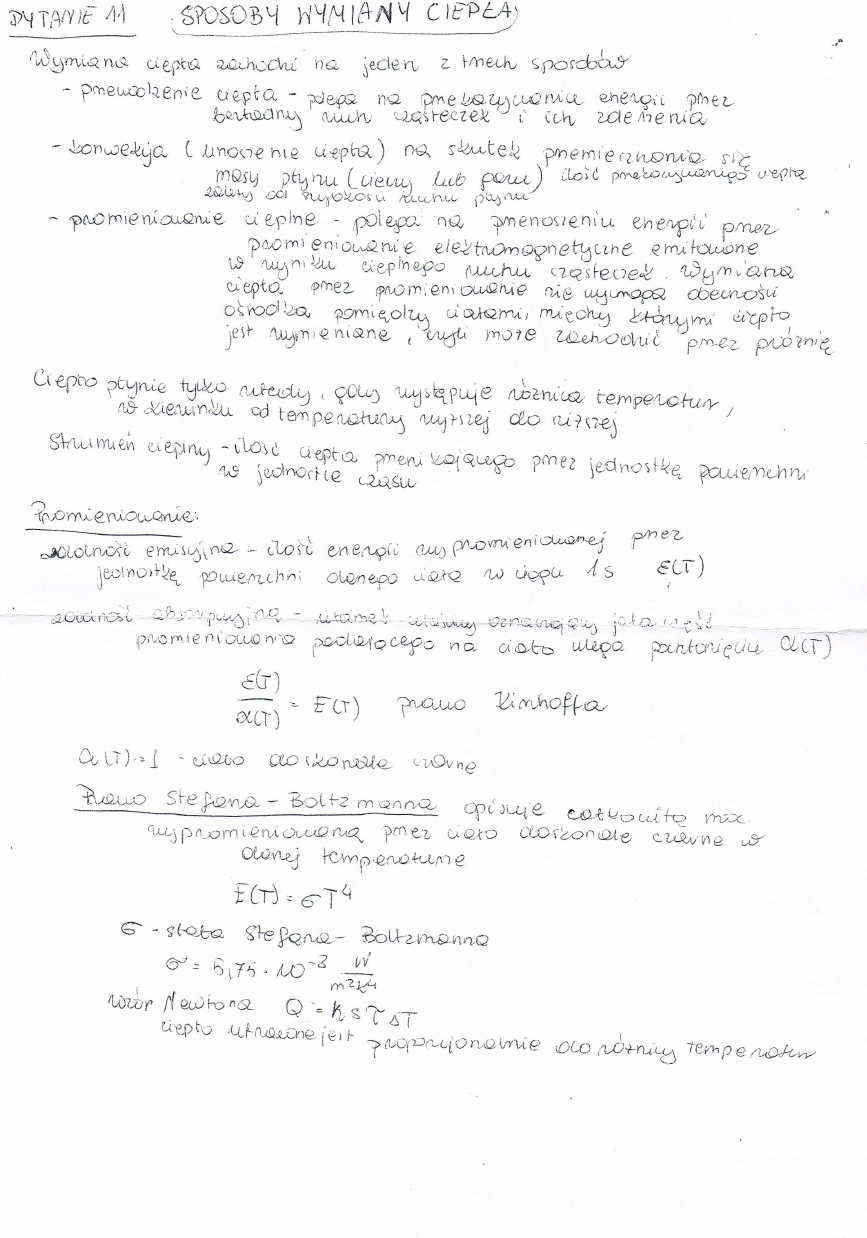 PYTANIE 11 SPOSOBY WYMIANY CIEPŁA
Wymiana ciepła zachodzi na jeden z trzech sposobów
- przewodzenie ciepła - polega na przekazywaniu energii przez
bezładny ruch cząsteczek i ich zderzenia
- konwekcja (unoszenie ciepła) na skutek przemieszczania się
masy płynu (cieczy lub gazu) ilość przekazywanego ciepła
zależy od szybkości ruchu płynu
- promieniowanie cieplne - polega na przenoszeniu energii przez
promieniowanie elektromagnetyczne emitowane
w wyniku cieplnego ruchu cząsteczek. Wymiana
ciepła przez promieniowanie nie wymaga obecności
ośrodka pomiędzy ciałami, między którymi ciepło
jest wymieniane, czyli może zachodzić przez próżnię
Ciepło płynie tylko wtedy, gdy występuje różnica temperatur,
w kierunku od temperatury wyższej do niższej
Strumień cieplny - ilość ciepła przenikającego przez jednostkę powierzchni
w jednostce czasu
Promieniowanie:
zdolność emisyjna - ilość energii wypromieniowanej przez
jednostkę powierzchni danego ciała w ciągu 1s ε(T)
zdolność absorpcyjna - ułamek właściwy oznaczający jaka część
promieniowania padającego na ciało ulega pochłonięciu α(T)
ε(T)/α(T) = E(T) prawo Kirchoffa
α(T)=1 - ciało doskonale czarne
Prawo Stefana - Boltzmanna opisuje całkowitą moc
wypromieniowaną przez ciało doskonale czarne w
danej temperaturze
E(T) = σT⁴
σ - stała Stefana - Boltzmanna
σ = 5,75 · 10⁻⁸ W/m²K⁴
Wzór Newtona Q = k s τ ΔT
ciepło utracone jest proporcjonalnie do różnicy temperatur